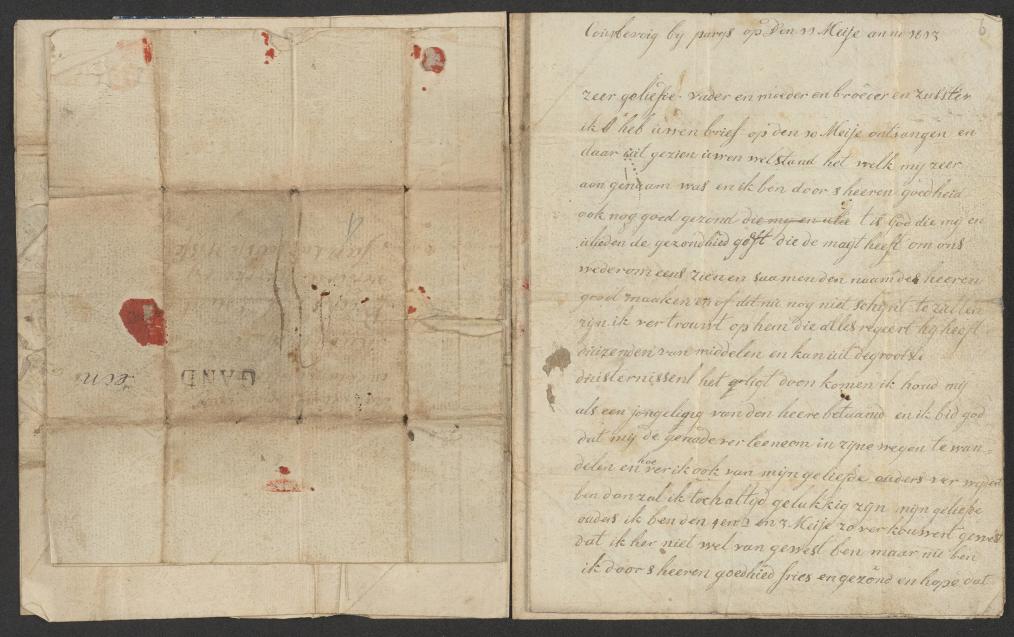 GAND
6
Courbevoig by parys op Den 11 Meije anno 1813
zeer geliefde vader en moeder en broeder en zusster
ik heb uwen brief op den 10 Meije ontvangen en
daar uit gezien uwen welstand het welk mij zeer
aan genaam was en ik ben door s heeren goedheid
ook nog goed gezond die mij en ulie t is god die mij en
ulieden de gezondhied geeft die de magt heeft om ons
wederom eens zien en saamen den naam des heeren
groot maaken en of dit nu nog niet schijnt te zullen
zijn ik vertrouwt op hem die alles regeert hij heeft
duizenden van middelen en kan uit de grootste
duisternissen het ligt doen komen ik houd mij
als een jongeling van den heere betaamd en ik bid god
dat mij de genade verleene om in zijne wegen te wan=
delen en hoe ver ik ook van mijn geliefde ouders ver wijdert
ben dan zal ik toch altijd gelukkig zijn mijn geliefde
ouders ik ben den en 3 Meije zo verkouwert gewest
dat ik her niet wel van gewest ben maar nu ben
ik door s heeren goedhied fries en gezond en hope dat